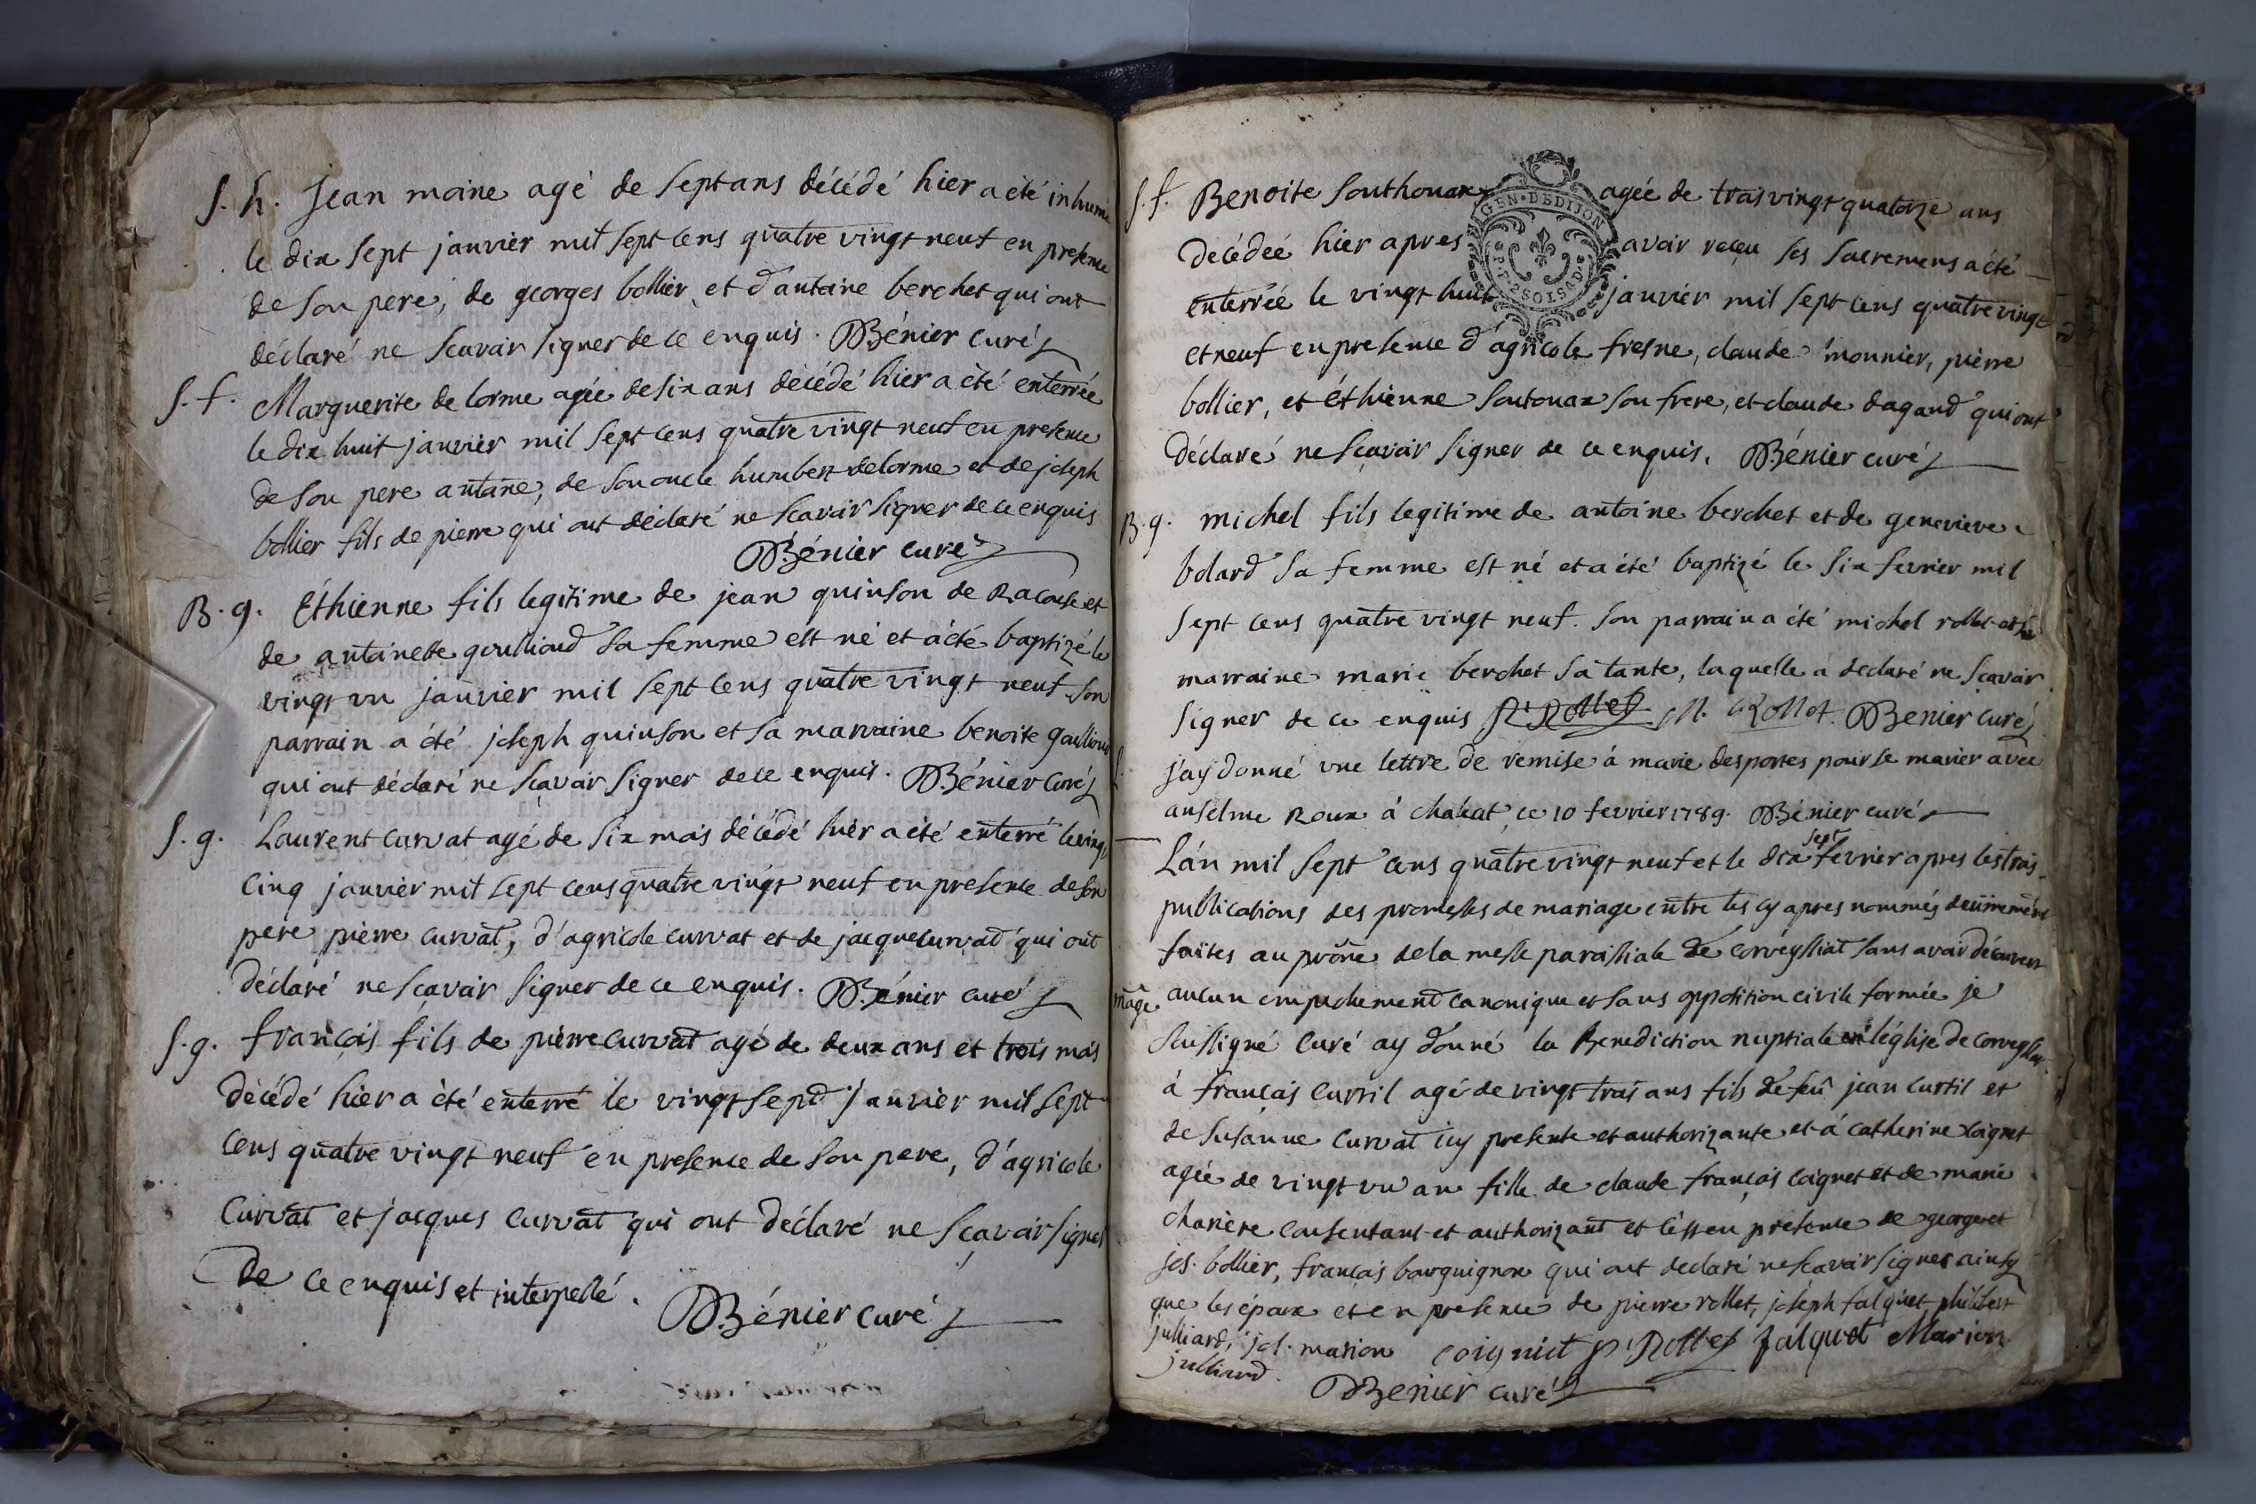 S. h. Jean moine agé de sept ans décédé hier a été inhumé
le dix sept janvier mil sept cens quatre vingt neuf en presence
de son pere, de georges bollier et d'antoine berchet qui ont
déclaré ne scavoir signer de ce enquis. Bénier curé
S. f. Marguerite de lorme agée de six ans décédé hier a été enterrée
le dix huit janvier mil sept cens quatre vingt neuf en presence
de son pere antoine, de son oncle humbert delorme et de joseph
bollier fils de pierre qui ont déclaré ne scavoir signer de ce enquis
Bénier curé
B. g. Éthienne fils legitime de jean quinson de Racouse et
de antoinette goulliond sa femme est né et a été baptizé le
vingt un janvier mil sept cens quatre vingt neuf son
parrain a été joseph quinson et sa marraine benoite goulliond
qui ont déclaré ne sçavoir signer de ce enquis. Bénier curé
S. g. Laurent curvat agé de six mois décédé hier a été enterré le vingt
cinq janvier mil sept cens quatre vingt neuf en présence de son
pere pierre curvat, d'agricole curvat et de jacque curvat qui ont
déclaré ne sçavoir signer de ce enquis. Bénier curé
S. g. françois fils de pierre curvat agé de deux ans et trois mois
décédé hier a été enterré le vingt sept janvier mil sept
cens quatre vingt neuf en presence de son pere, d'agricole
curvat et jacques curvat qui ont déclaré ne sçavoir signer
de ce enquis et interpellé.
Bénier curé
S. f. Benoite Southonax agée de trois vingt quatorze ans
GEN. DE DIJON
décédée hier apres avoir reçu ses sacremens a été
2 SOLS
enterrée le vingt huit janvier mil sept cens quatre vingt
et neuf en presence d'agricole fresne, claude monnier, pierre
bollier, et éthienne Soutonax son frere, et claude dagand qui ont
déclaré ne sçavoir signer de ce enquis. Bénier curé
B. g. michel fils legitime de antoine berchet et de genevieve
bolard sa femme est né et a été baptizé le six fevrier mil
sept cens quatre vingt neuf. son parrain a été michel rollet et sa
marraine marie berchet sa tante, laquelle a declaré ne scavoir
signer de ce enquis P. Rollet M. Rollet. Benier curé
j'ay donné une lettre de remise à marie desportes pour se marier avec
anselme Roux à chaleat, ce 10 fevrier 1789. Bénier curé
L'an mil sept cens quatre vingt neuf et le dix sept fevrier apres les trois
publications des promesses de mariage entre les cy apres nommés deüement
faites au prône de la messe paroissiale de corveyssiat sans avoir découvert
mage aucun empechement canonique et sans opposition civile formée je
soussigné curé ay donné la Benediction nuptiale en l'église de corveyssiat
à françois curtil agé de vingt trois ans fils de feû jean curtil et
de susanne curvat icy presente et authorizante et à catherine coignet
agée de vingt un an fille de claude françois coignet et de marie
chariere consentant et authorizant et ce en présence de george et
jos. bollier, françois bourguignon qui ont declaré ne scavoir signer ainsy
que les époux et en presence de pierre rollet, joseph falquet, philibert
julliard, jos. marion coignet P. Rollet falquet Marion
julliard.
Benier curé